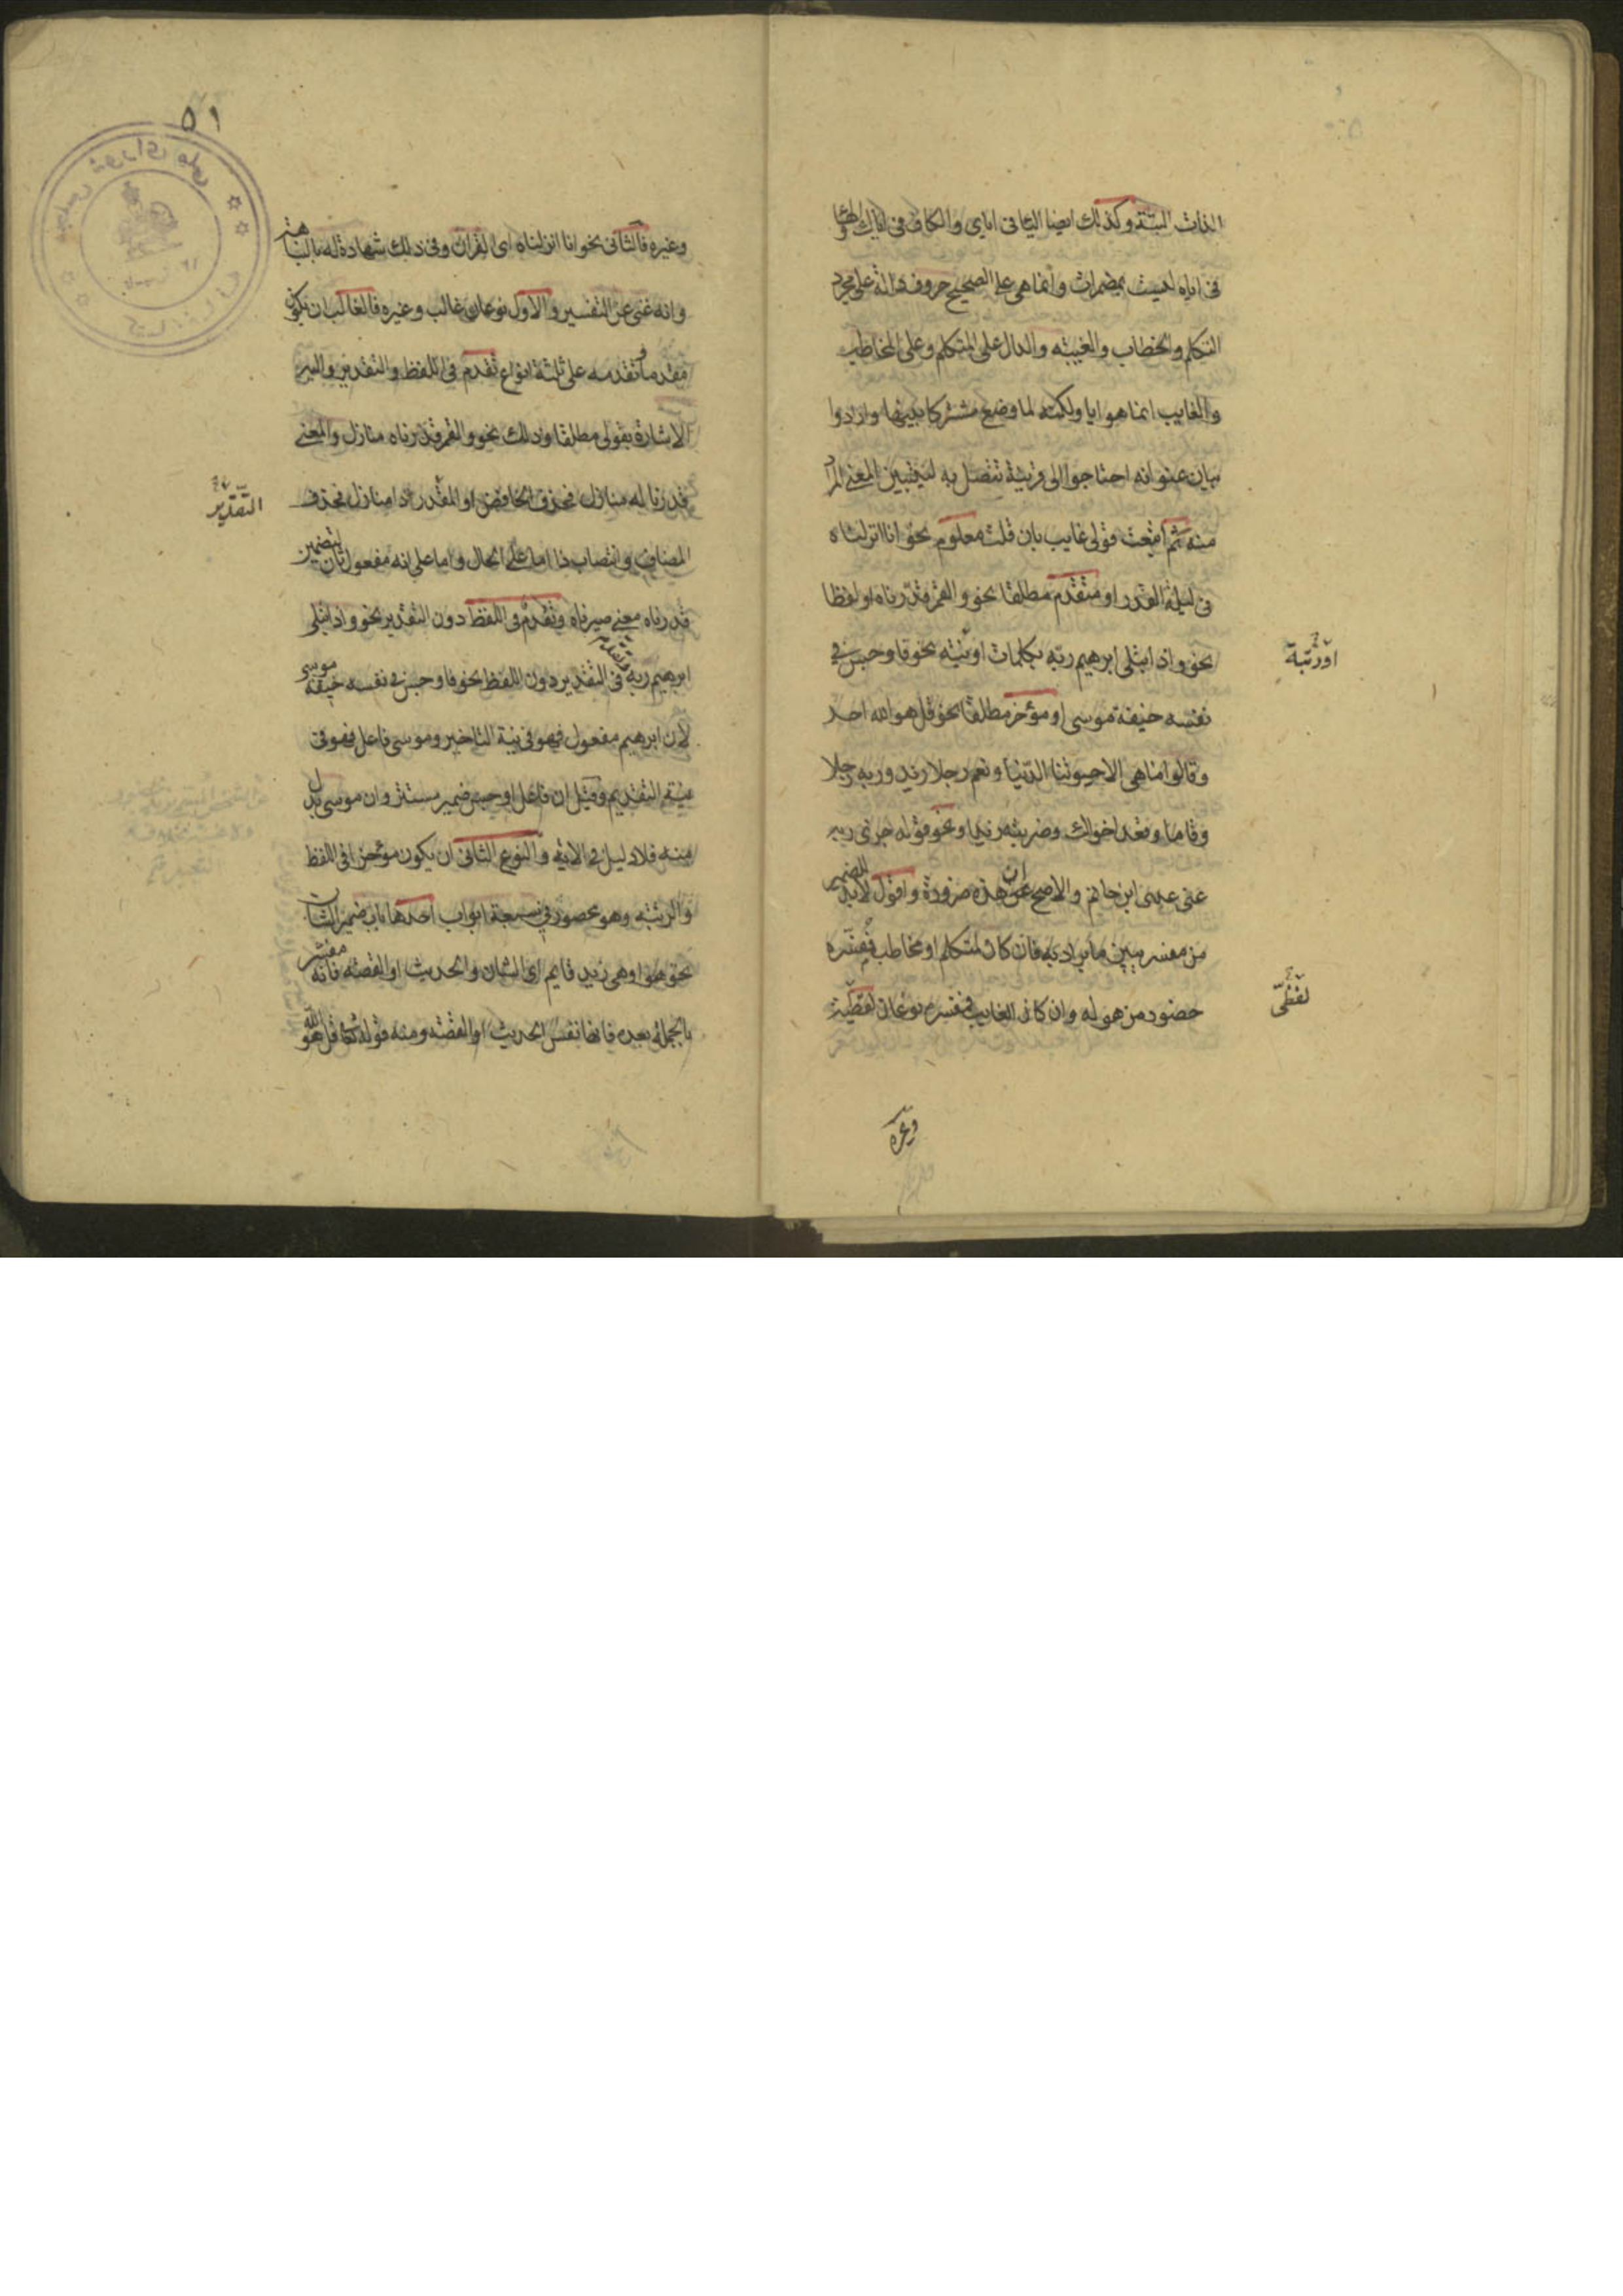 الذات البتة وكذلك ايضا الياء فى اياي والكاف فى اياك والهاء
فى اياه ليست بمضمرات وانما هى على الصحيح حروف دالة على مجرد
التكلم والخطاب والغيبة والدال على المتكلم وعلى المخاطب
والغايب انما هو ايا ولكنه لما وضع مشتركا بينها وارادوا
بيان عنوا به احتاجوا الى قرينة تتصل به ليتبين المعنى المراد
منه ثم اتبعت قولى غايب بان قلت معلوم نحو انا انزلناه
فى ليلة القدر او متقدم مطلقا نحو والقمر قدرناه او لفظا
او رتبة
نحو واذ ابتلى ابرهيم ربه بكلمات او نية نحو فاوجس فى
نفسه خيفة موسى او مؤخر مطلقا نحو قل هو الله احد
وقالوا ما هى الا حيوتنا الدنيا ونعم رجلا زيد وربه رجلا
وقاما وقعد اخواك وضربته زيدا ونحو قوله جزى ربه
عنى عدى ابن حاتم والاصح ان هذه ضرورة واقول لابد للضمير
من مفسر يبين ما يراد به فان كان لمتكلم او مخاطب فمفسره
حضور من هو له وان كان الغايب فمفسره نوعان لفظية
لفظى
وغيره
٥١
وغيره فالثانى نحو انا انزلناه اى القران وفى ذلك شهادة له بالنباهة
وانه غنى عن التفسير والاول نوعان غالب وغيره فالغالب ان يكون
مقدما وتقدمه على ثلثة انواع تقدم فى اللفظ والتقدير واليه
الاشارة بقولى مطلقا وذلك نحو والقمر قدرناه منازل والمعنى
قدرنا له منازل فحذف الخافض او المقدر ذا منازل فحذف
التقدير
المضاف وانتصاب ذا اما على الحال واما على انه مفعول ثان بتضمين
قدرناه معنى صيرناه وتقدم فى اللفظ دون التقدير نحو واذ ابتلى
ابرهيم ربه وتقدم فى التقدير دون اللفظ نحو فاوجس فى نفسه خيفة موسى
لان ابرهيم مفعول فهو فى نية التاخير وموسى فاعل فهو فى
نية التقديم وقيل ان فاعل اوجس ضمير مستتر وان موسى بدل
منه فلا دليل فى الاية والنوع الثانى ان يكون مؤخرا فى اللفظ
والرتبة وهو محصور فى سبعة ابواب احدها باب ضمير الشان
نحو هو او هى زيد قايم اى الشان والحديث او القصة فانه مفسر
بالجملة بعده فانها نفس الحديث او القصة ومنه قوله تعالى قل هو الله